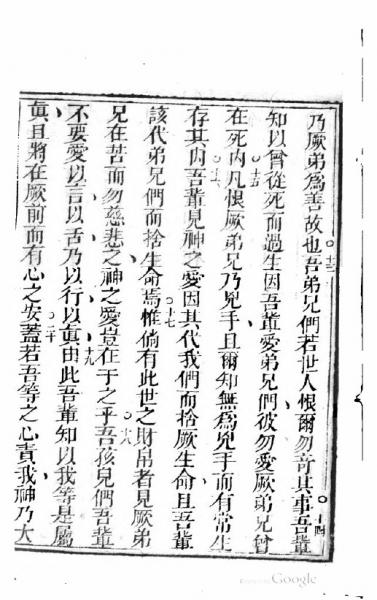 乃厥弟為善故也○十三吾弟兄們若世人恨爾勿奇其事○十四吾輩
知以曾從死而過生因吾輩愛弟兄們彼勿愛厥弟兄曾
在死內○十五凡恨厥弟兄乃兇手且爾知無為兇手而有常生
存其內○十六吾輩見神之愛因其代我們而捨厥生命且吾輩
該代弟兄們而捨生命焉○十七惟倘有此世之財帛者見厥弟
兄在苦而勿慈悲之神之愛豈在于之乎○十八吾孩兒們吾輩
不要愛以言以舌乃以行以眞○十九由此吾輩知以我等是屬
眞且將在厥前而有心之安○二十蓋若吾等之心責我神乃大
Google